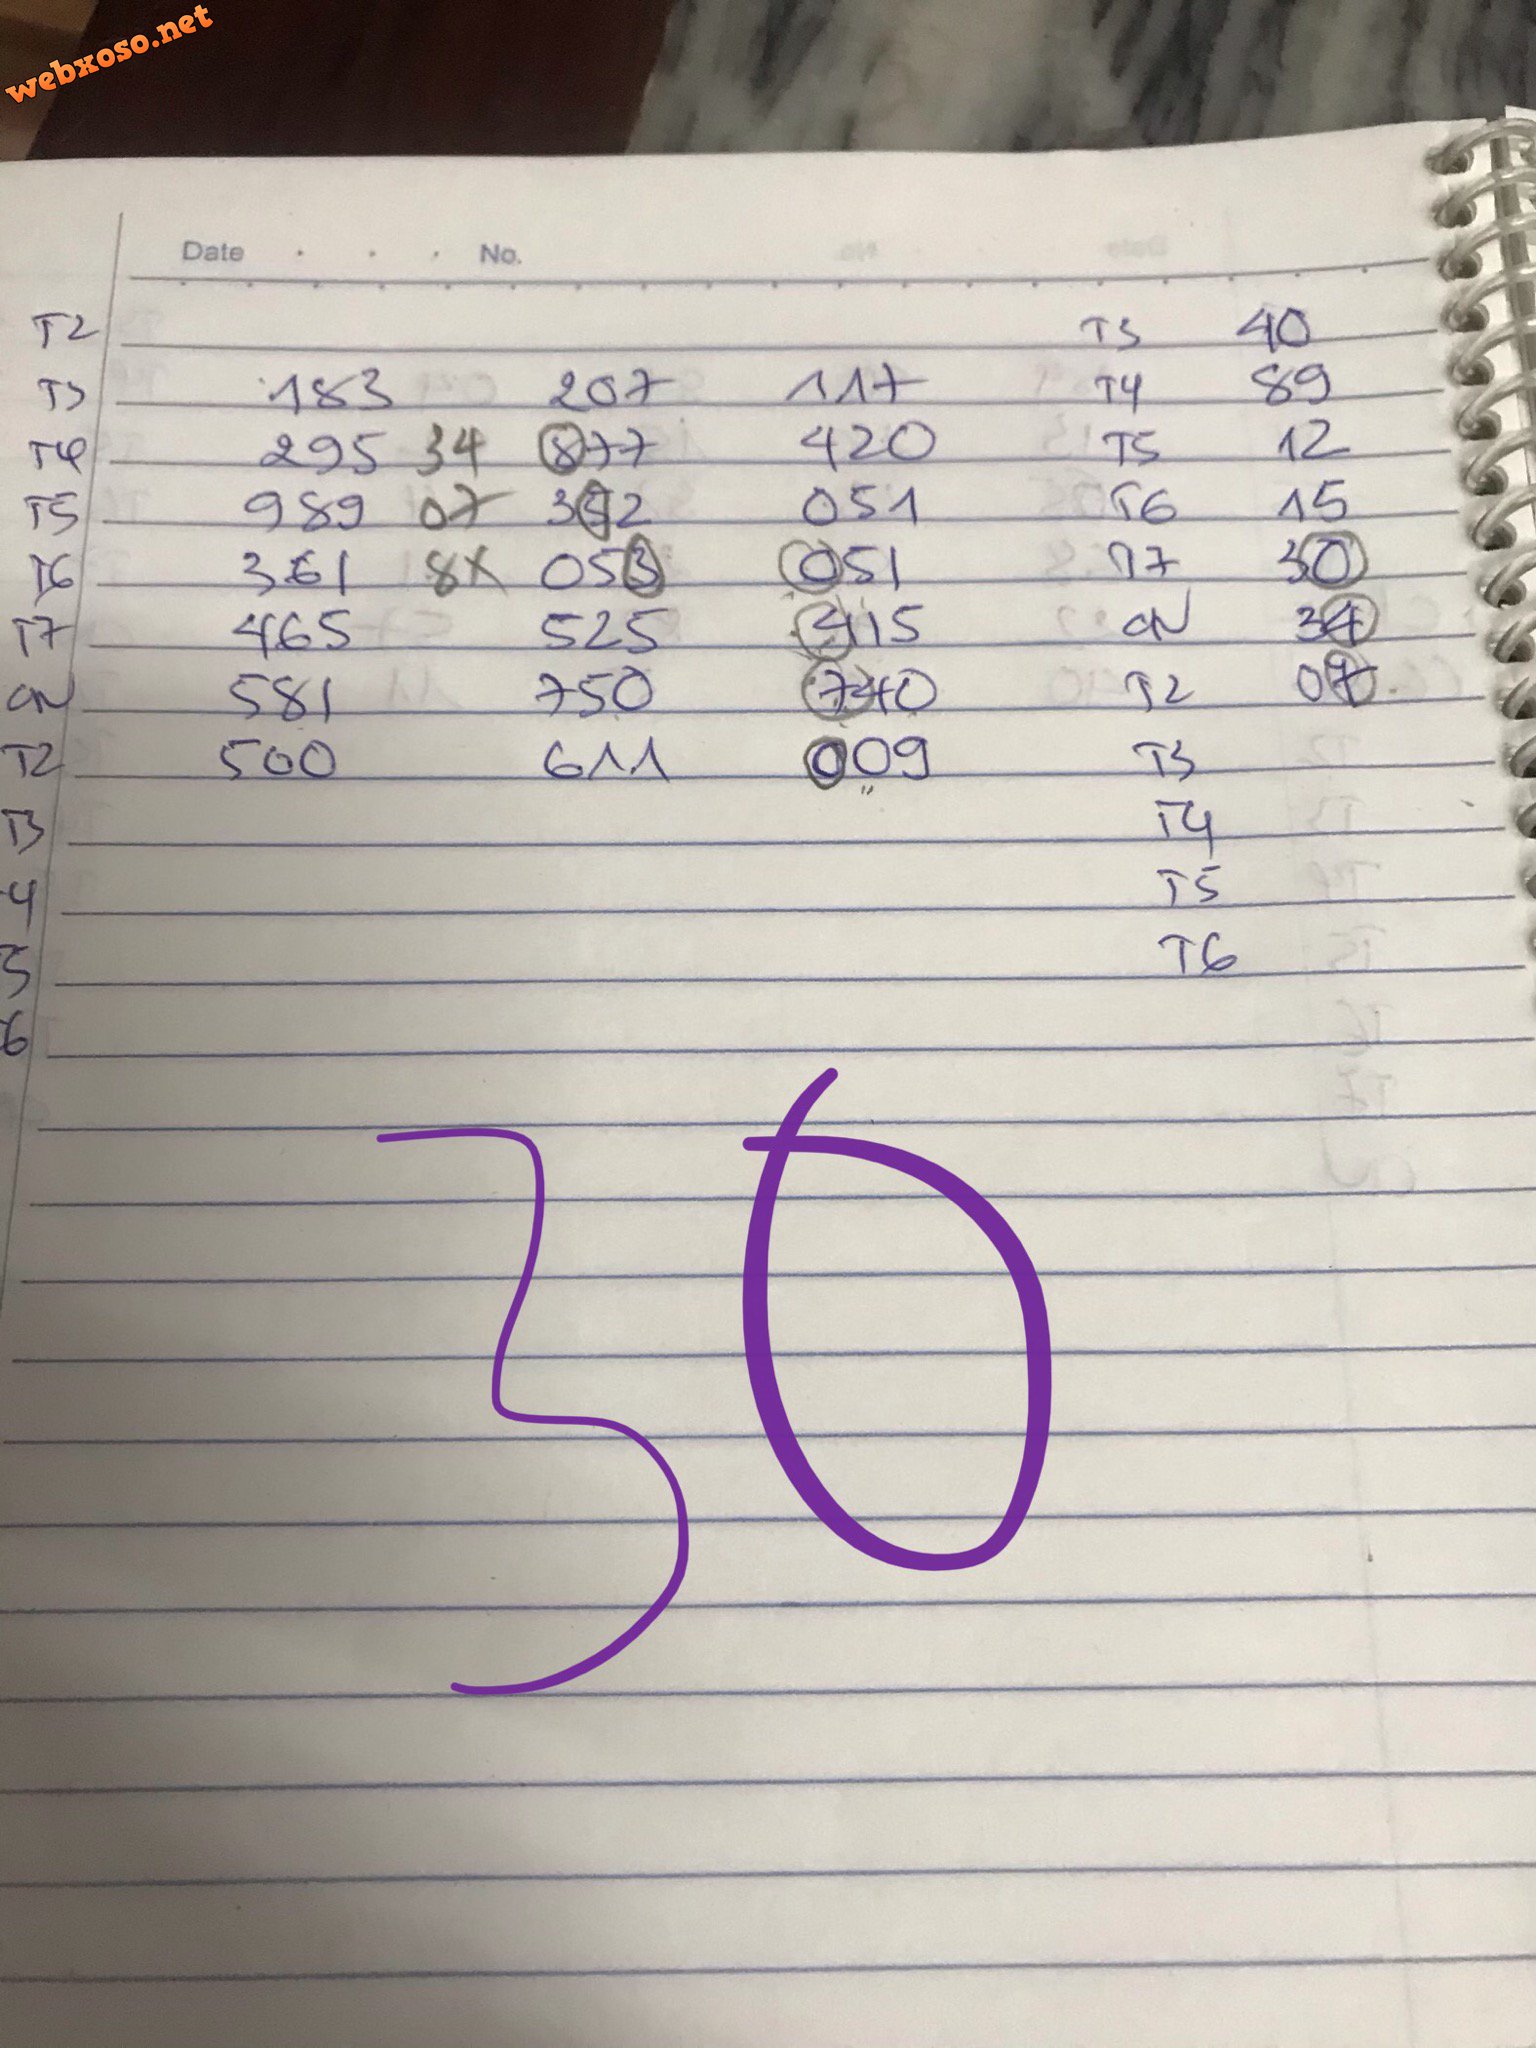 webxoso.net
Date . . . No.
T2 T3 40
T3 183 207 117 T4 89
T4 295 34 877 420 T5 12
T5 989 07 352 051 T6 15
T6 361 8X 053 051 T7 30
T7 465 525 415 CN 34
CN 581 750 740 T2 07
T2 500 611 009 T3
T3 T4
T4 T5
T5 T6
T6
30